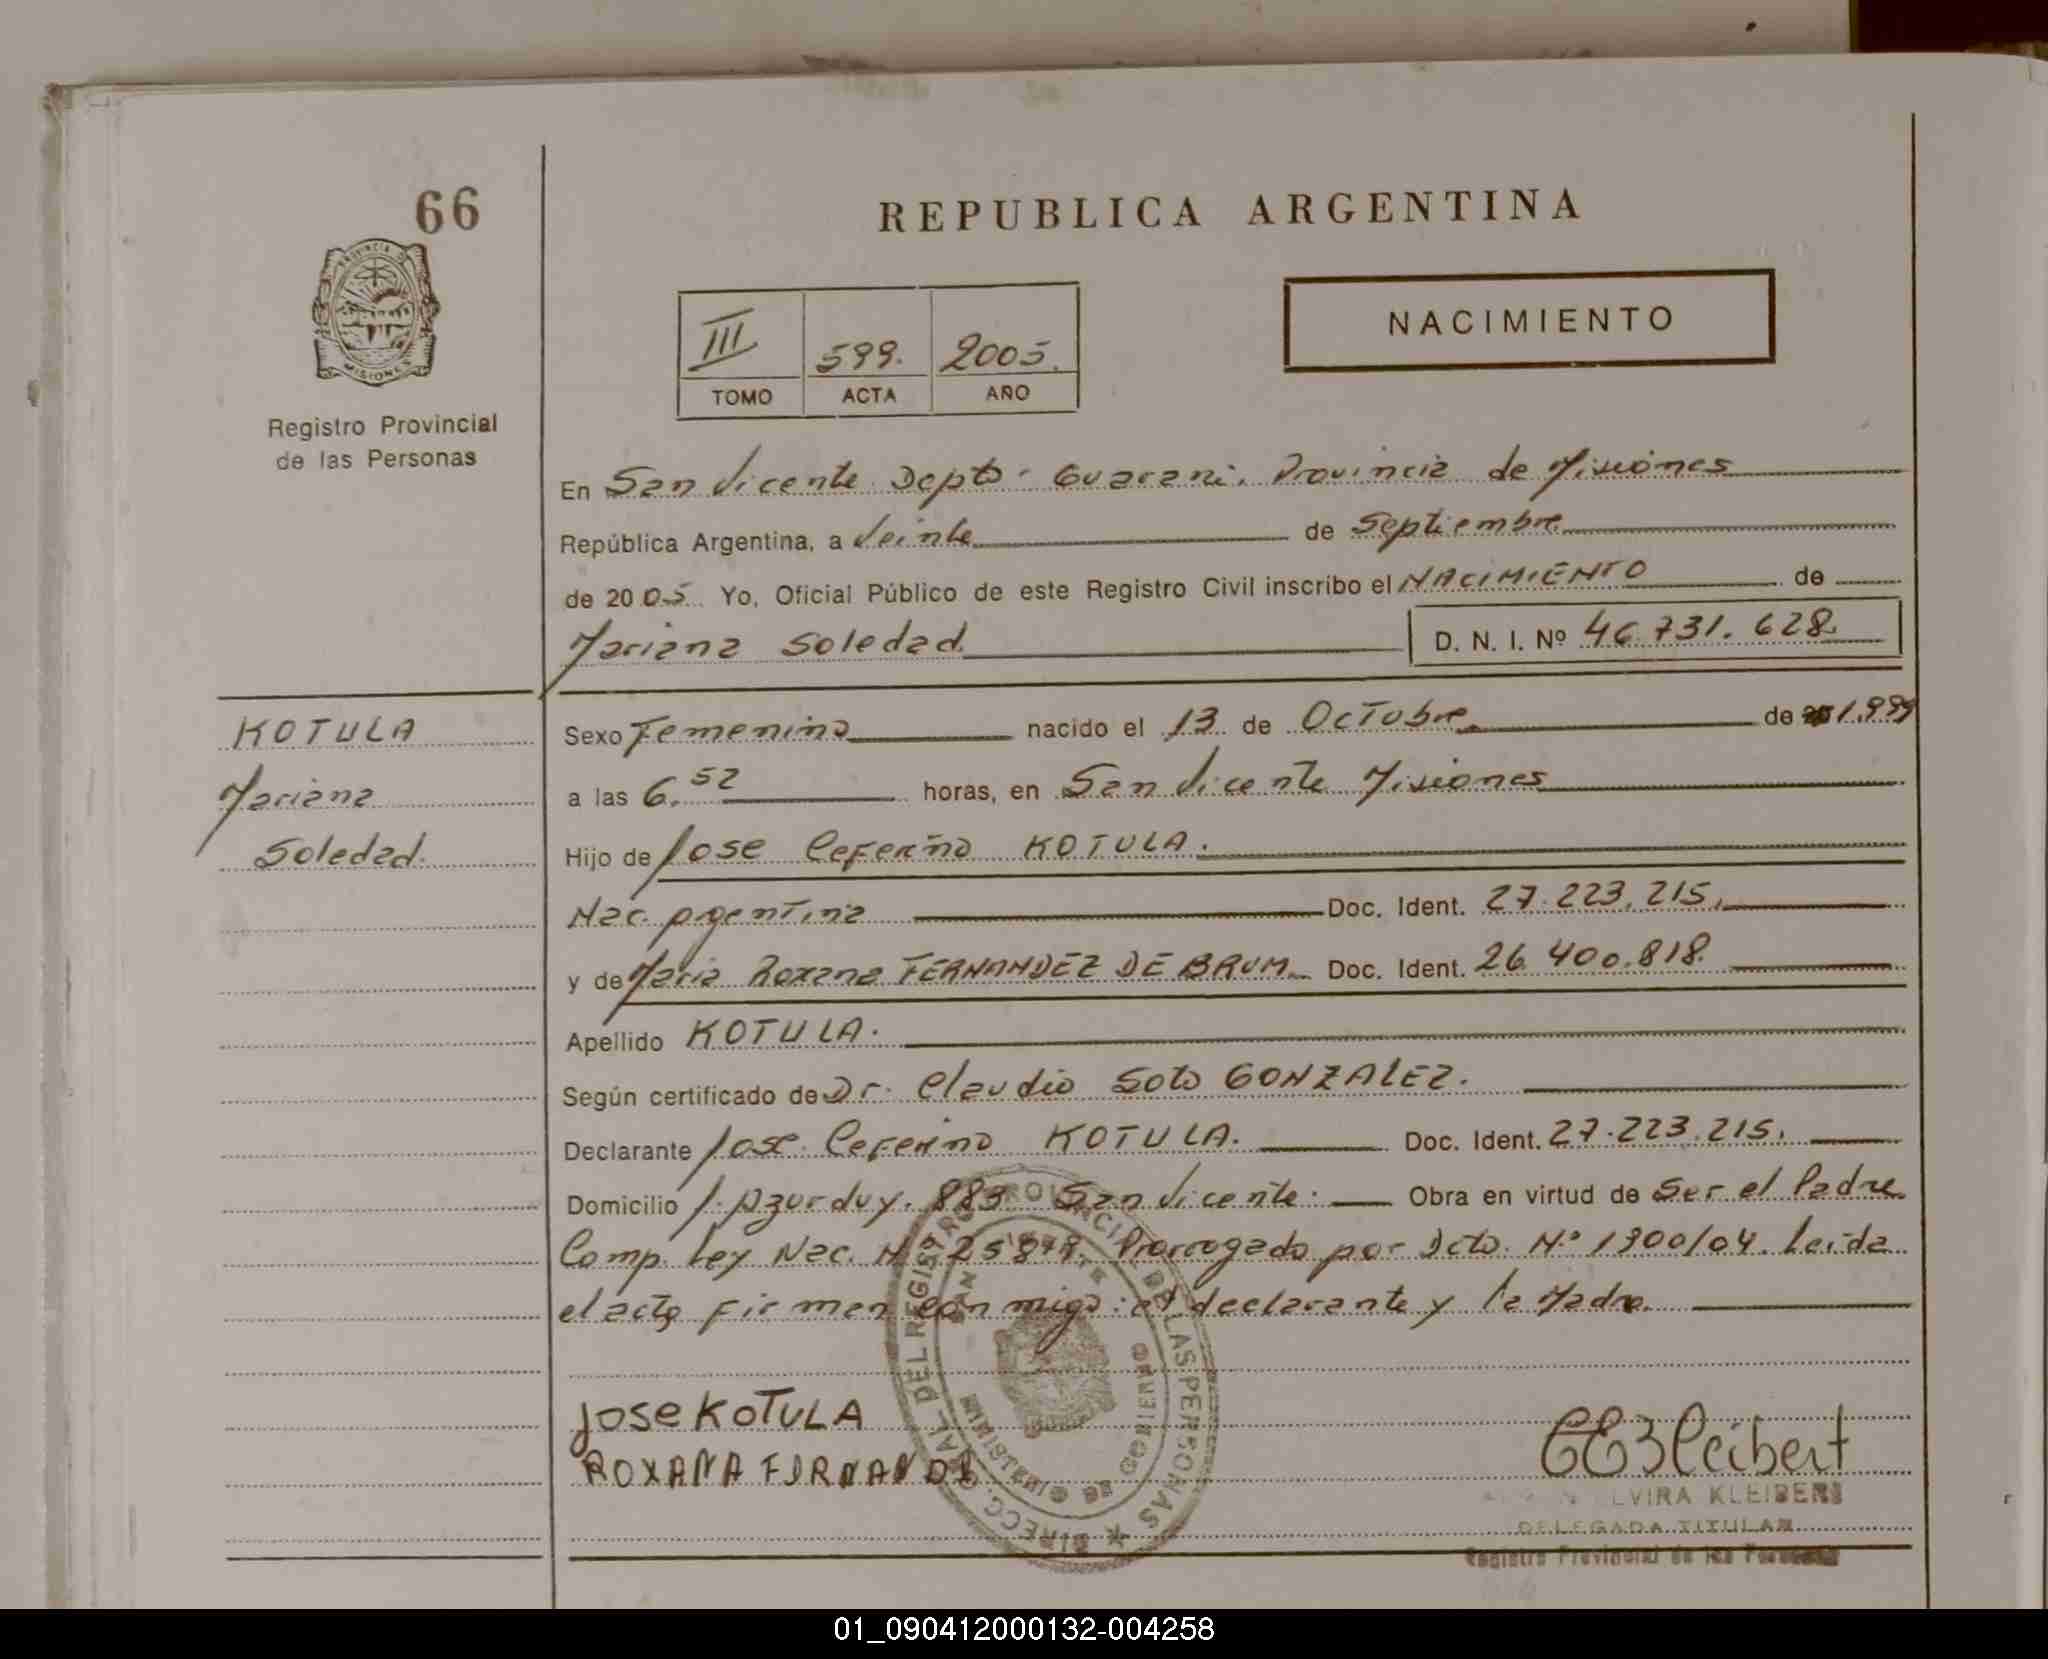 66
REPUBLICA ARGENTINA
PROVINCIA D
MISIONES
Registro Provincial
de las Personas
III 599. 2005.
TOMO ACTA AÑO
NACIMIENTO
En San Vicente Depto. Guarani. Provincia de Misiones
República Argentina, a Veinte de Septiembre
de 2005 Yo, Oficial Público de este Registro Civil inscribo el NACIMIENTO de
Mariana Soledad D. N. I. Nº 46.731.628.
KOTULA
Mariana
Soledad.
Sexo Femenino nacido el 13 de Octubre de 1.999
a las 6.52 horas, en San Vicente Misiones
Hijo de Jose Ceferino KOTULA.
Nac. Argentina Doc. Ident. 27.223.215.
y de Maria Roxana FERNANDEZ DE BRUM Doc. Ident. 26.400.818.
Apellido KOTULA.
Según certificado de Dr. Claudio Soto GONZALEZ.
Declarante Jose Ceferino KOTULA. Doc. Ident. 27.223.215.
Domicilio J. Azurduy. 883 San Vicente. Obra en virtud de Ser el Padre
Comp. Ley Nac. Nº 25819. Prorrogado por Dcto. Nº 1900/04. Leida
el acta firman conmigo: el declarante y la Madre.
DIRECC GRAL DEL REGISTRO PROVINCIAL DE LAS PERSONAS
SAN VICENTE
MINISTERIO DE GOBIERNO
Jose KOTULA
ROXANA
Kleibert
ELVIRA KLEIBERT
DELEGADA TITULAR
Registro Provincial de las Personas
01_090412000132-004258